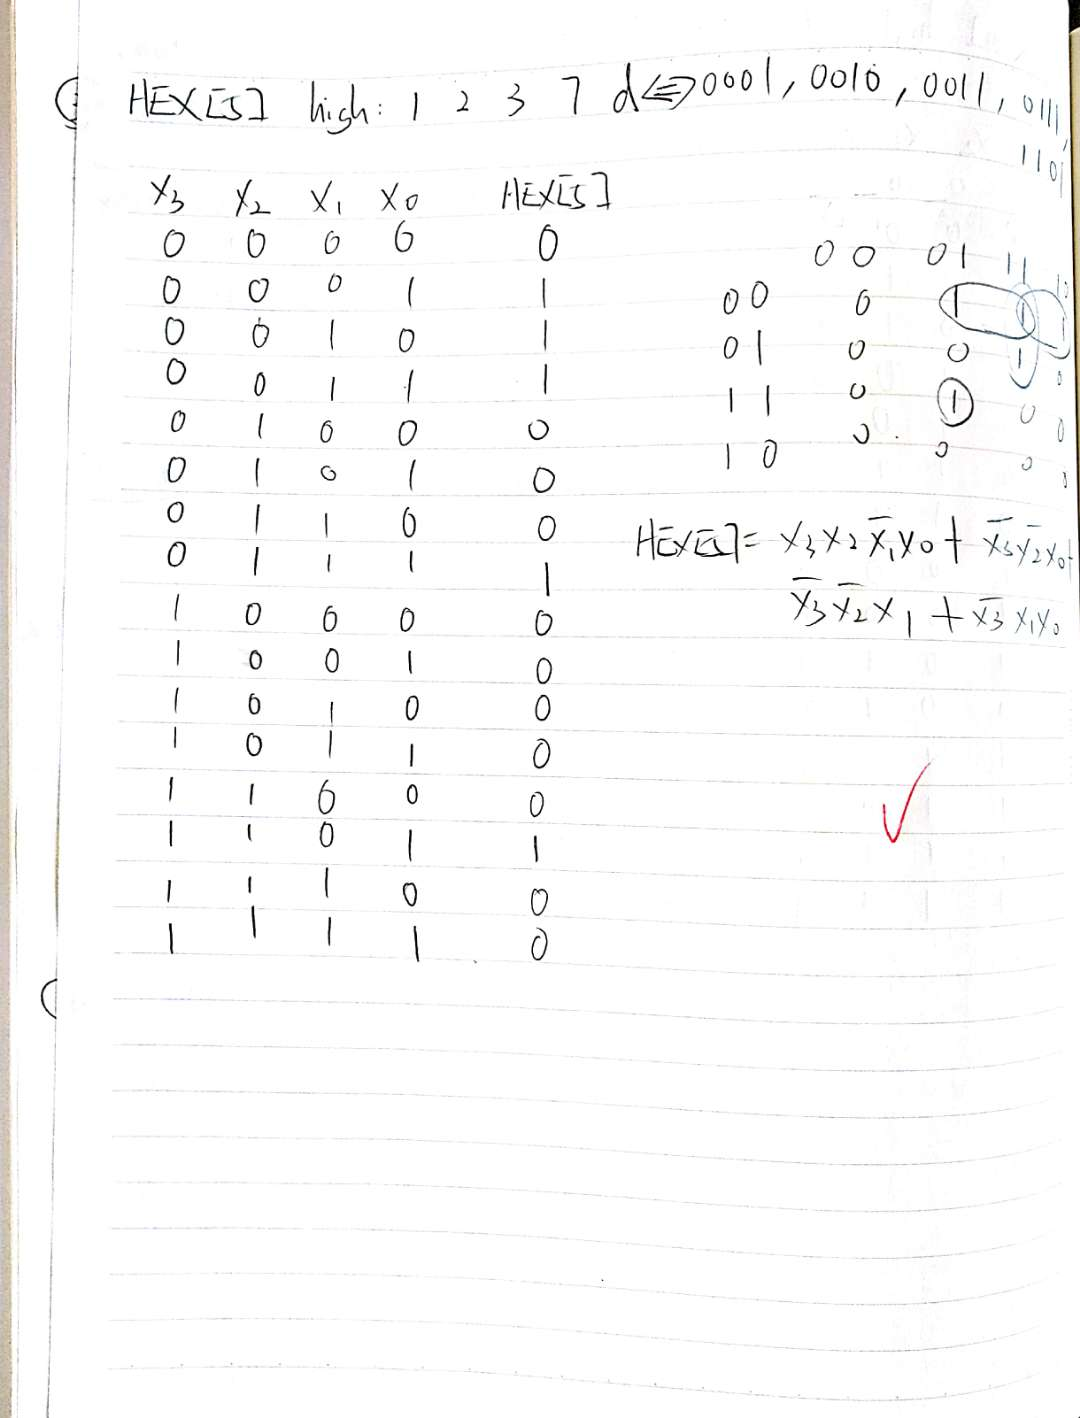 HEX[5] high: 1 2 3 7 d⇔0001, 0010, 0011, 0111,
1101
X₃ X₂ X₁ X₀ HEX[5]
0 0 0 0 0
0 0 0 1 1
0 0 1 0 1
0 0 1 1 1
0 1 0 0 0
0 1 0 1 0
0 1 1 0 0
0 1 1 1 1
1 0 0 0 0
1 0 0 1 0
1 0 1 0 0
1 0 1 1 0
1 1 0 0 0
1 1 0 1 1
1 1 1 0 0
1 1 1 1 0
00 01 11 10
00 0 1 1 1
01 0 0 1 0
11 0 1 0 0
10 0 0 0 0
HEX[5]= X₃X₂X̅₁X₀ + X̅₃X̅₂X₀+
X̅₃X̅₂X₁ + X̅₃X₁X₀